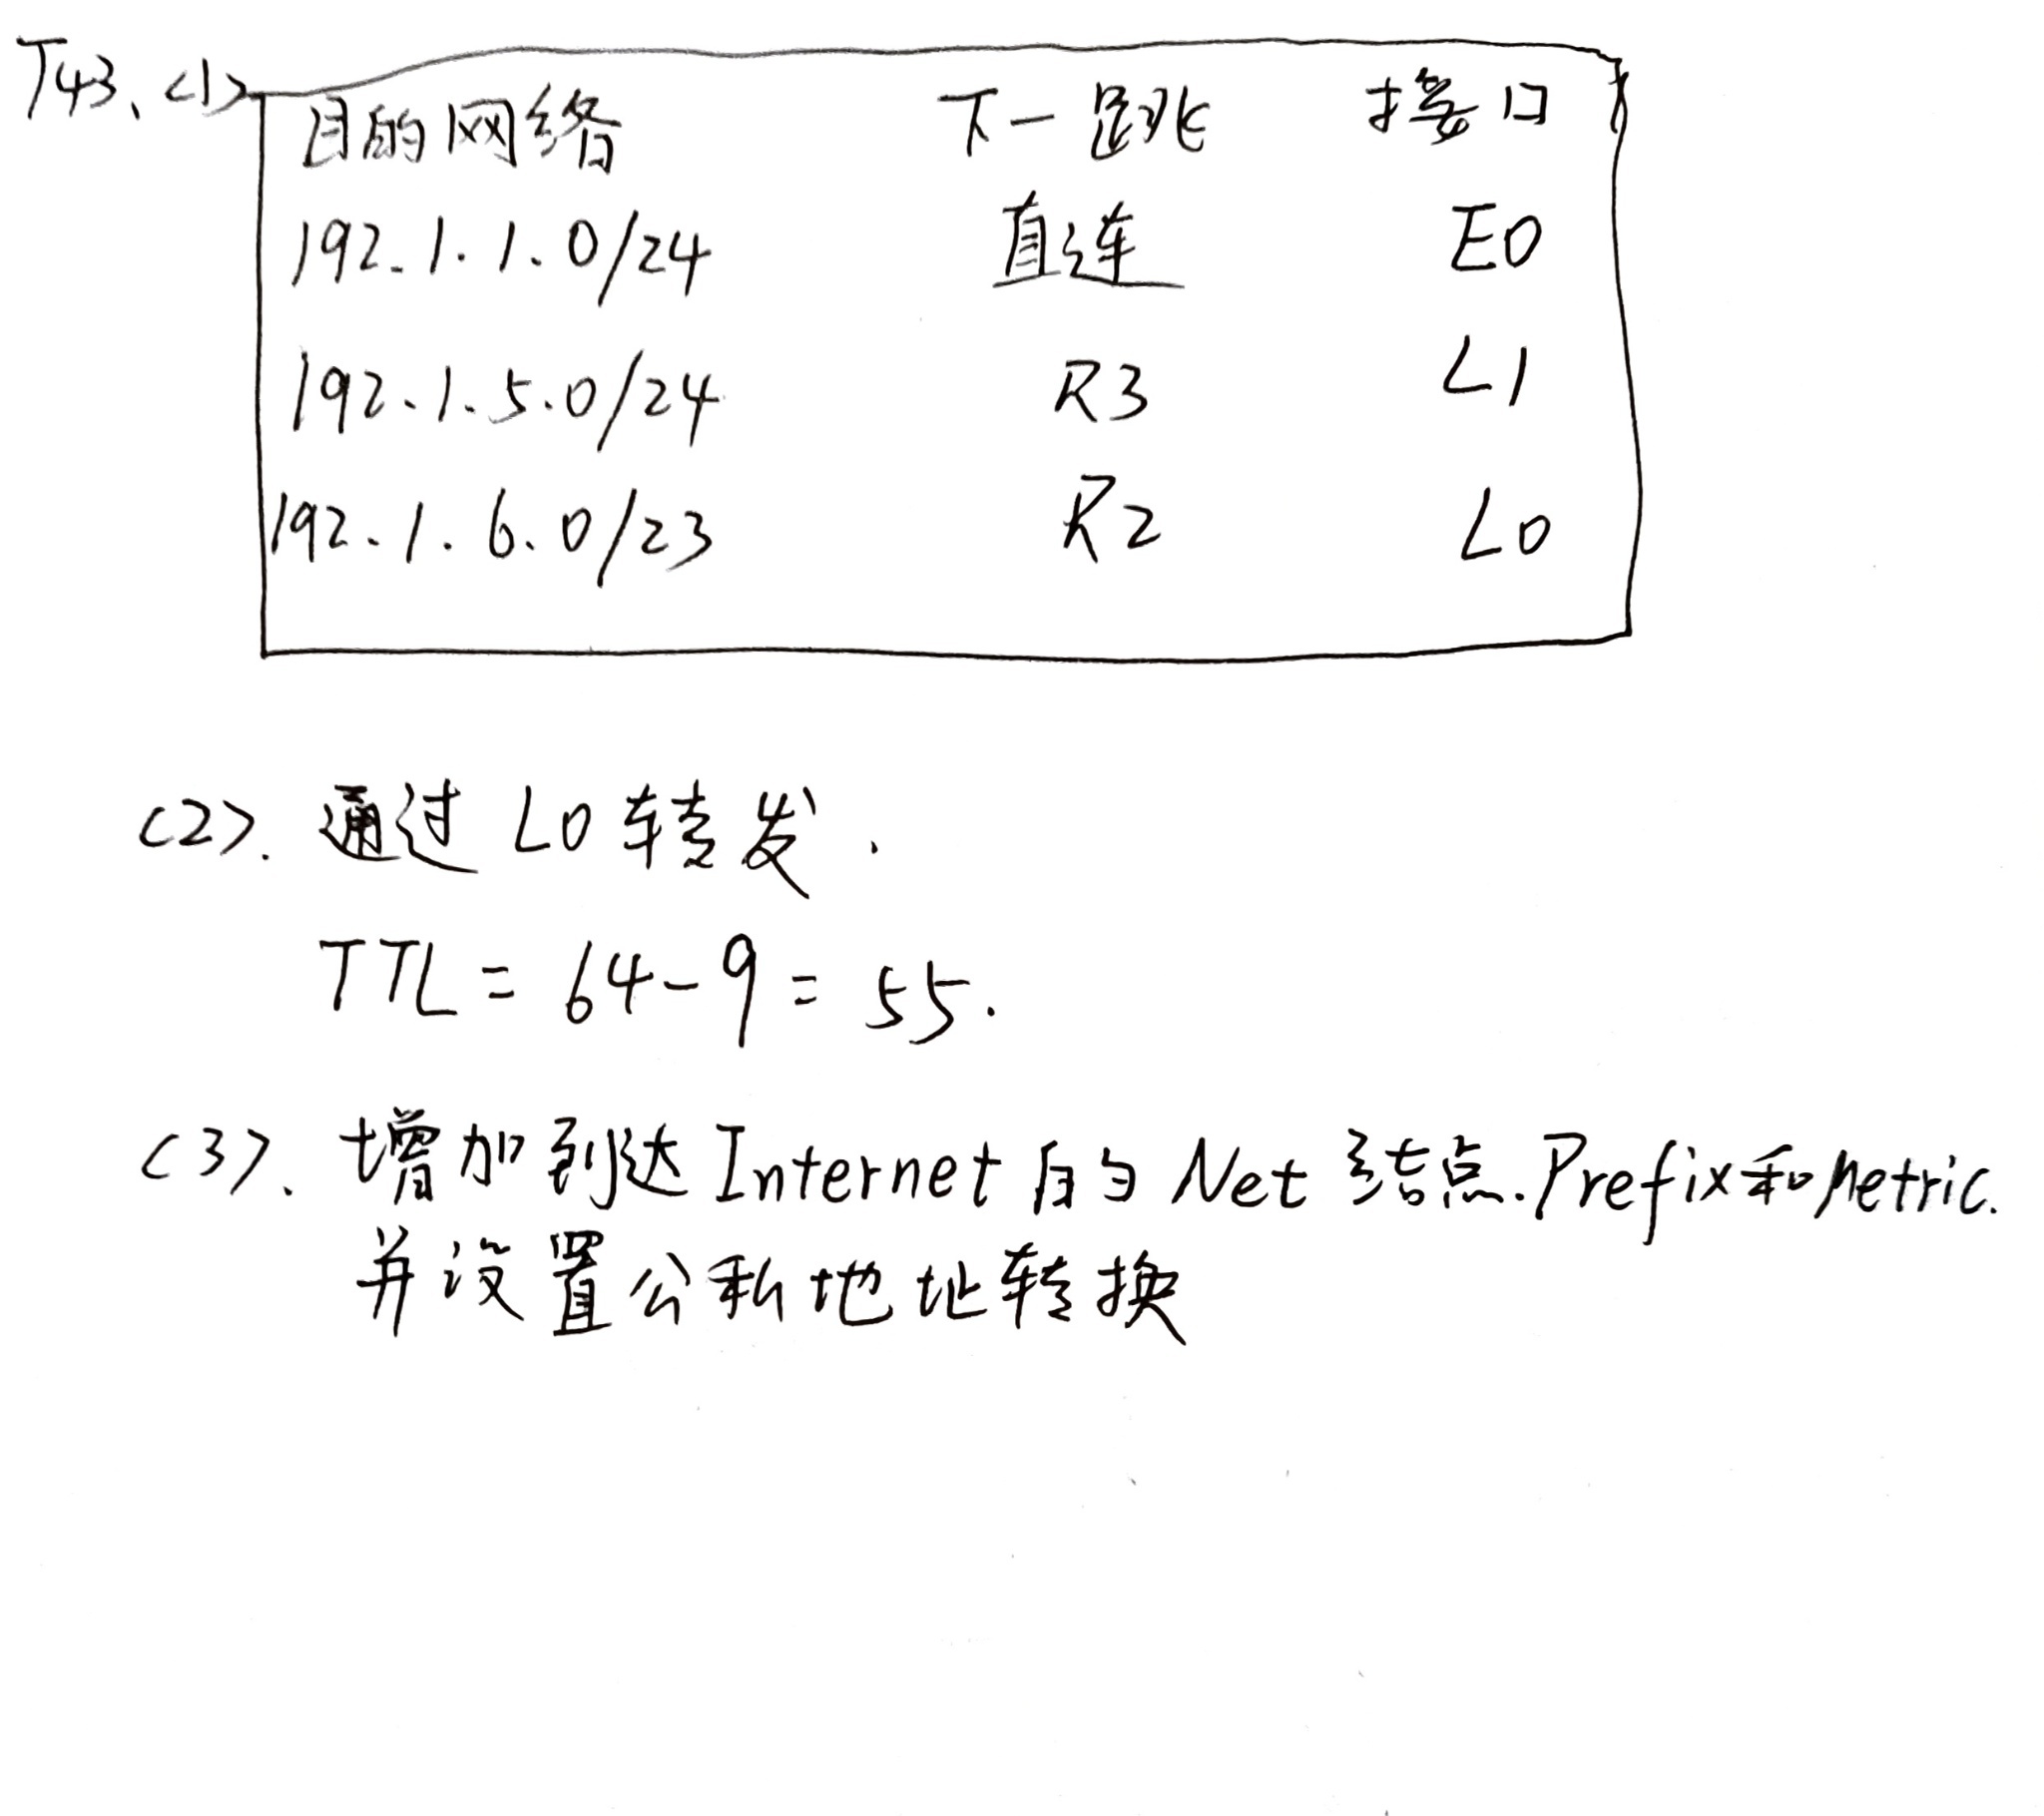 T43、<1> 目的网络 下一跳 接口
192.1.1.0/24 直连 E0
192.1.5.0/24 R3 L1
192.1.6.0/23 R2 L0
<2>. 通过 L0 转发.
TTL = 64-9 = 55.
<3>. 增加到达 Internet 的 Net 结点.Prefix和Metric.
并设置公私地址转换